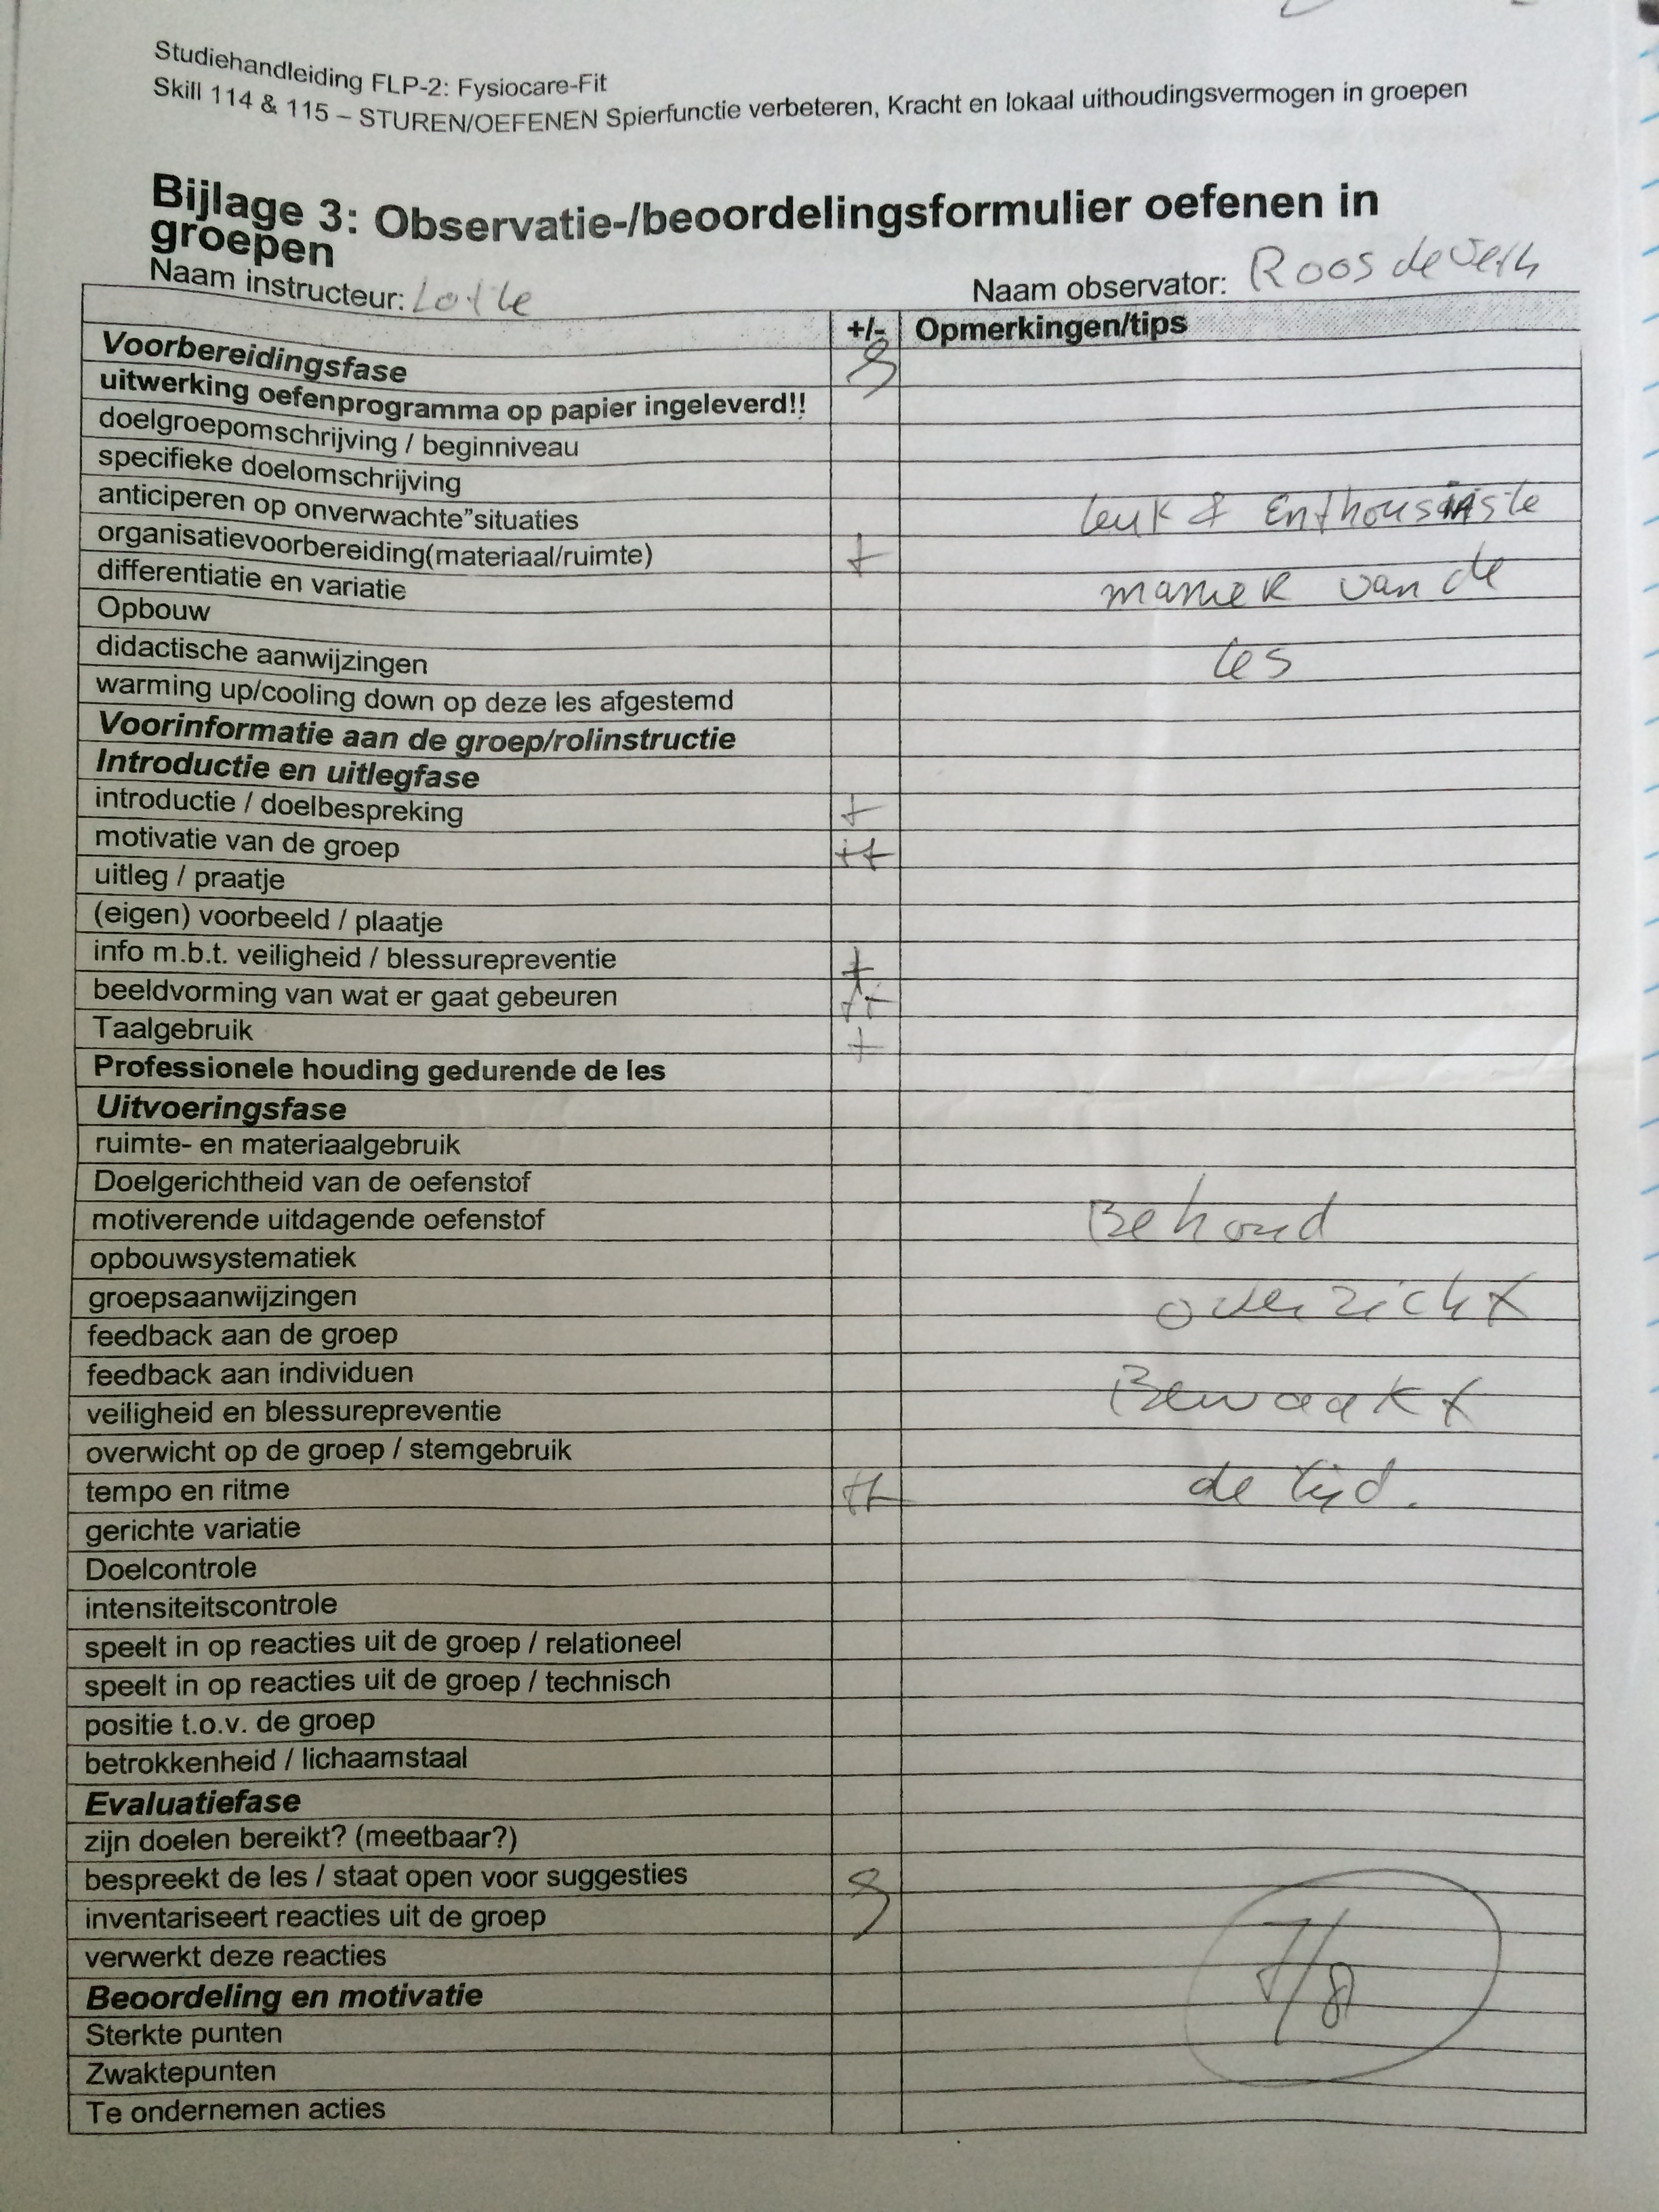 Studiehandleiding FLP-2: Fysiocare-Fit
Skill 114 & 115 – STUREN/OEFENEN Spierfunctie verbeteren, Kracht en lokaal uithoudingsvermogen in groepen
Bijlage 3: Observatie-/beoordelingsformulier oefenen in
groepen
Naam instructeur: Lotte Naam observator: Roos de
+/- Opmerkingen/tips
Voorbereidingsfase
uitwerking oefenprogramma op papier ingeleverd!!
doelgroepomschrijving / beginniveau
specifieke doelomschrijving
anticiperen op onverwachte”situaties leuk & Enthousiaste
organisatievoorbereiding(materiaal/ruimte) +
differentiatie en variatie manier van de
Opbouw
didactische aanwijzingen les
warming up/cooling down op deze les afgestemd
Voorinformatie aan de groep/rolinstructie
Introductie en uitlegfase
introductie / doelbespreking +
motivatie van de groep ++
uitleg / praatje
(eigen) voorbeeld / plaatje
info m.b.t. veiligheid / blessurepreventie +
beeldvorming van wat er gaat gebeuren ++
Taalgebruik +
Professionele houding gedurende de les
Uitvoeringsfase
ruimte- en materiaalgebruik
Doelgerichtheid van de oefenstof
motiverende uitdagende oefenstof Behoud
opbouwsystematiek
groepsaanwijzingen overzicht
feedback aan de groep
feedback aan individuen Bewaakt
veiligheid en blessurepreventie
overwicht op de groep / stemgebruik
tempo en ritme ++ de tijd.
gerichte variatie
Doelcontrole
intensiteitscontrole
speelt in op reacties uit de groep / relationeel
speelt in op reacties uit de groep / technisch
positie t.o.v. de groep
betrokkenheid / lichaamstaal
Evaluatiefase
zijn doelen bereikt? (meetbaar?)
bespreekt de les / staat open voor suggesties
inventariseert reacties uit de groep
verwerkt deze reacties 7/8
Beoordeling en motivatie
Sterkte punten
Zwaktepunten
Te ondernemen acties